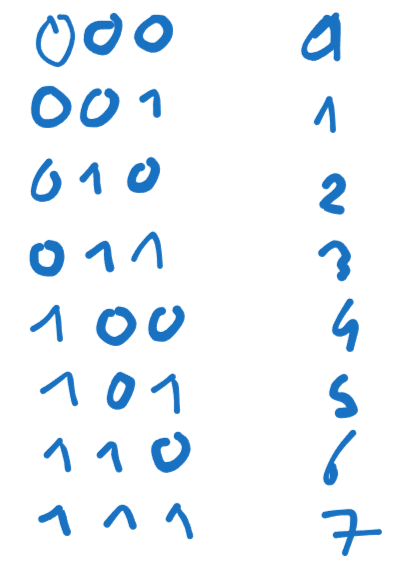 000 0
001 1
010 2
011 3
100 4
101 5
110 6
111 7